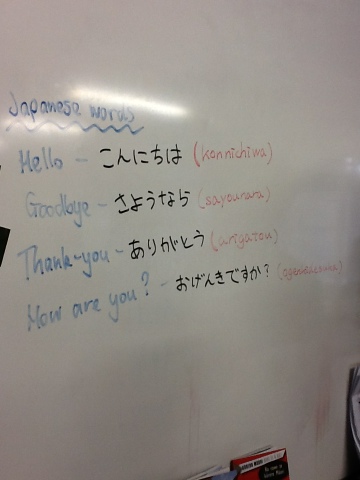 Japanese words
Hello - こんにちは (konnichiwa)
Goodbye - さようなら (sayounara)
Thank-you - ありがとう (arigatou)
How are you? - おげんきですか? (ogenkidesuka)